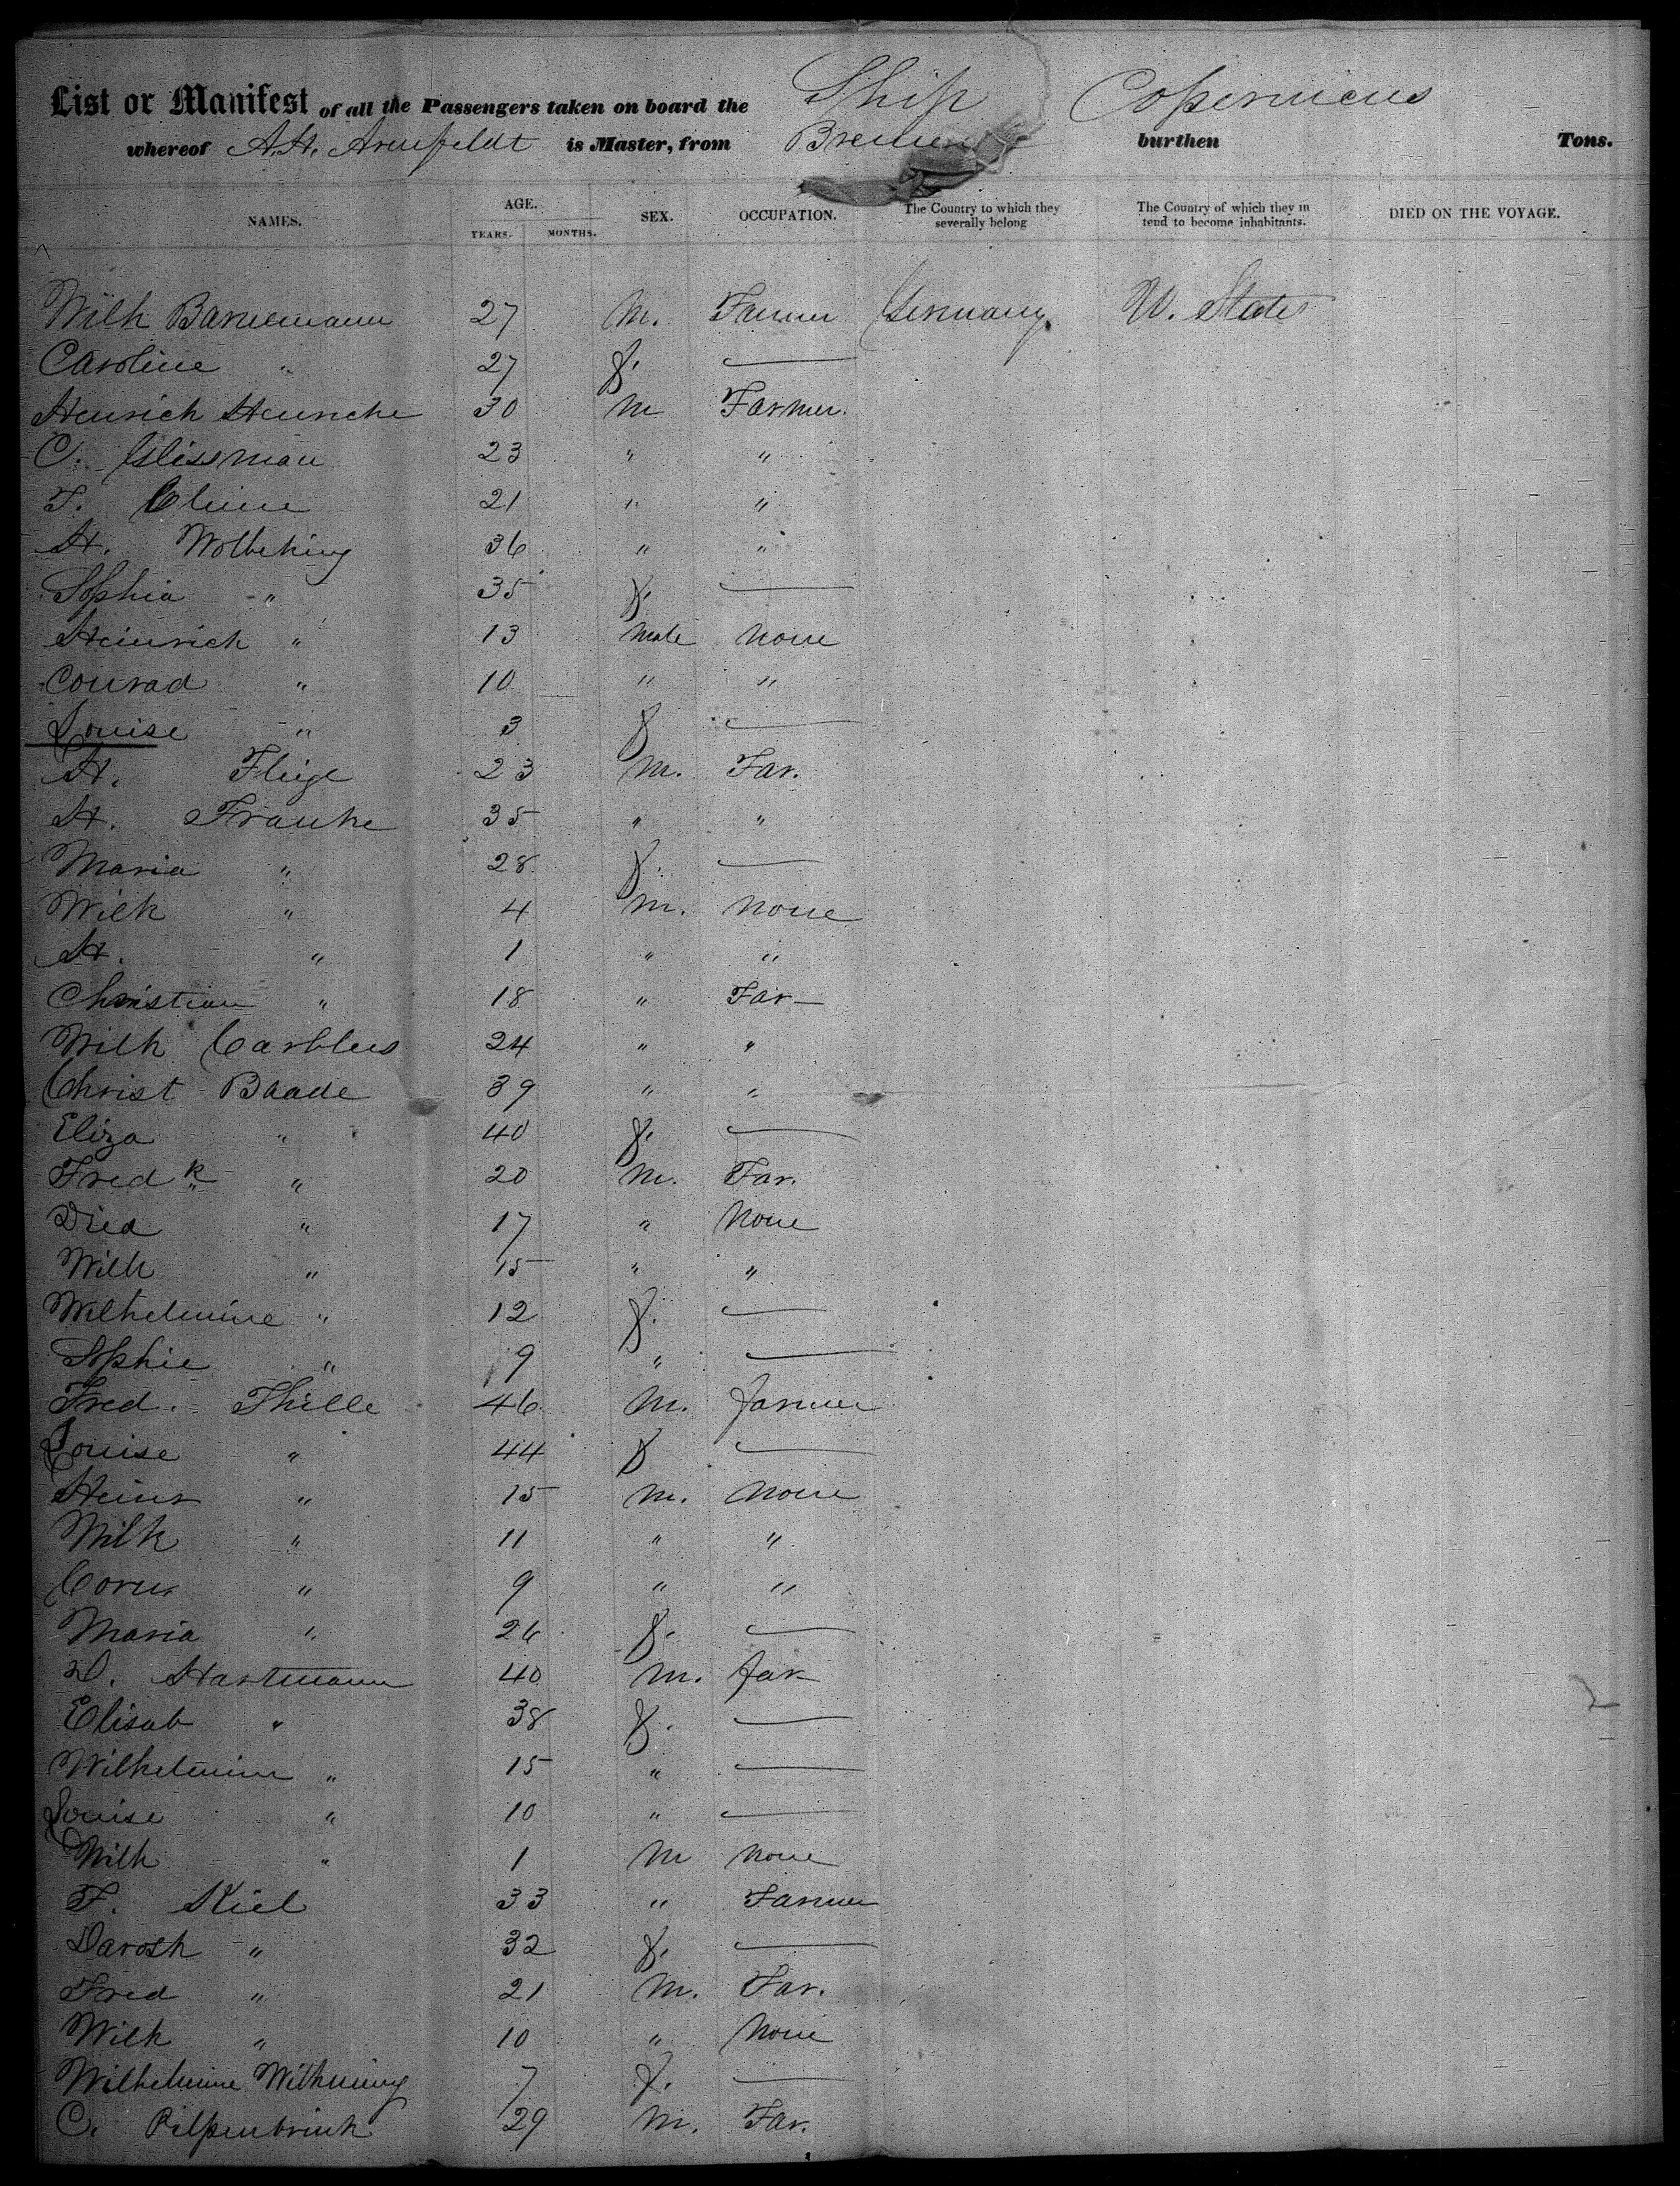 List or Manifest of all the Passengers taken on board the Ship Copernicus
whereof A.H. Arenfeldt is Master, from Bremen burthen Tons.
NAMES. AGE. YEARS. MONTHS. SEX. OCCUPATION. The Country to which they severally belong The Country of which they intend to become inhabitants. DIED ON THE VOYAGE.
Wilh Bannemann 27 M. Farmer Germany U. States
Caroline " 27 f. —
Henrich Hensche 30 M Farmer.
C. Glissman 23 " "
F. Clume 21 " "
H. Wolbehing 36 " "
Sophia " 35 f. —
Heinrich " 13 male None
Conrad " 10 " "
Louise " 3 f —
H. Fliege 23 M. Far.
H. Franke 35 " "
Maria " 28 f. —
Wilh " 4 M. None
H. " 1 " "
Christian " 18 " Far—
Wilh Carbleus 24 " "
Christ Baade 39 " "
Eliza " 40 f. —
Fredk " 20 M. Far.
Died " 17 " None
Wilh " 15 " "
Wilhelmine " 12 f. —
Sophie " 9 " —
Fred. Thille 46 M. farmer
Louise " 44 f —
Heinr " 15 M. None
Wilh " 11 " "
Corn " 9 " "
Maria " 26 f. —
D. Hartmann 40 M. far
Elisab " 38 f. —
Wilhelmine " 15 " —
Louise " 10 " —
Wilh " 1 M None
F. Kiel 33 " Farmer
Daroth " 32 f. —
Fred " 21 M. Far.
Wilh " 10 " None
Wilhelmine Withuing 7 f. —
C. Pilpenbrink 29 M. Far.